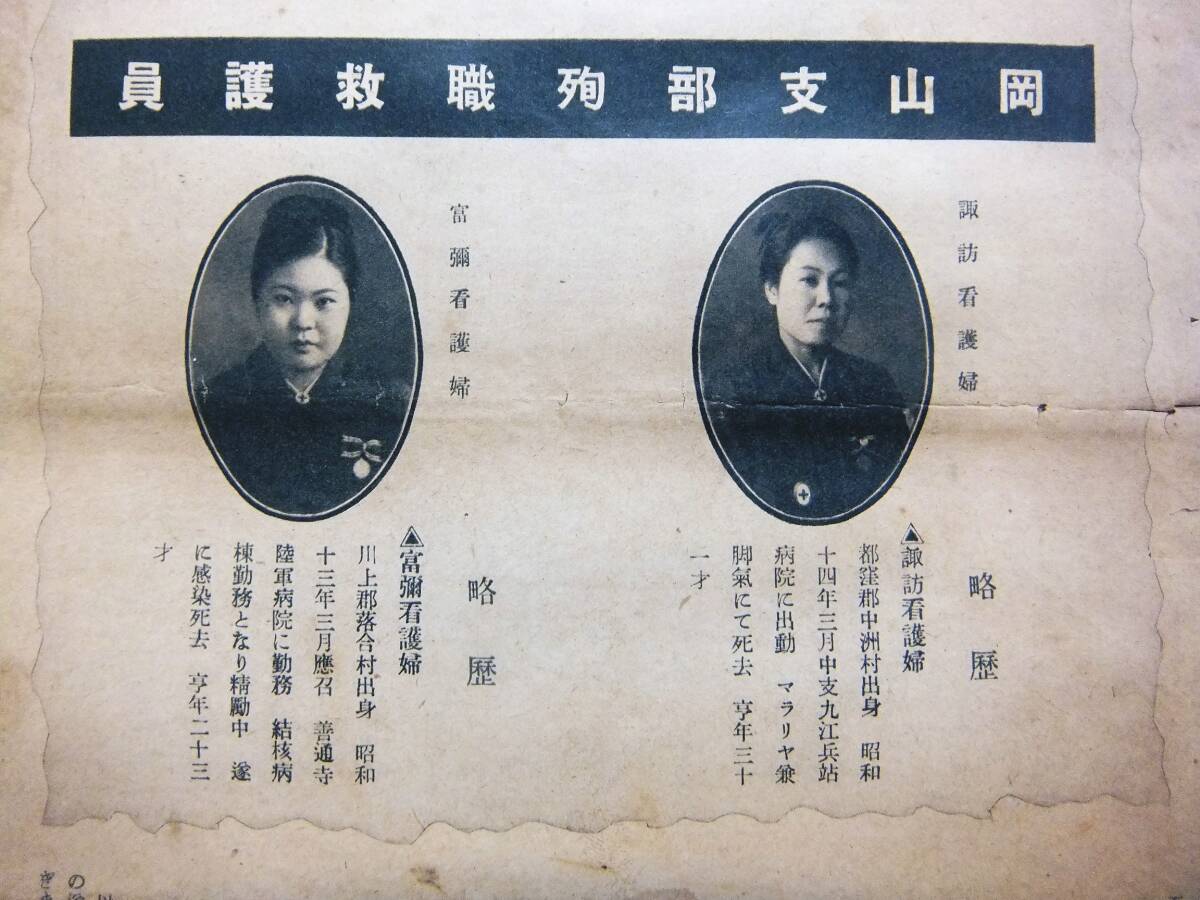 岡山支部殉職救護員
諏訪看護婦
略歴
▲諏訪看護婦
都窪郡中洲村出身　昭和
十四年三月中支九江兵站
病院に出動　マラリヤ兼
脚氣にて死去　享年三十
一才
富彌看護婦
略歴
▲富彌看護婦
川上郡落合村出身　昭和
十三年三月應召　善通寺
陸軍病院に勤務　結核病
棟勤務となり精勵中　遂
に感染死去　享年二十三
才
の
ぎ